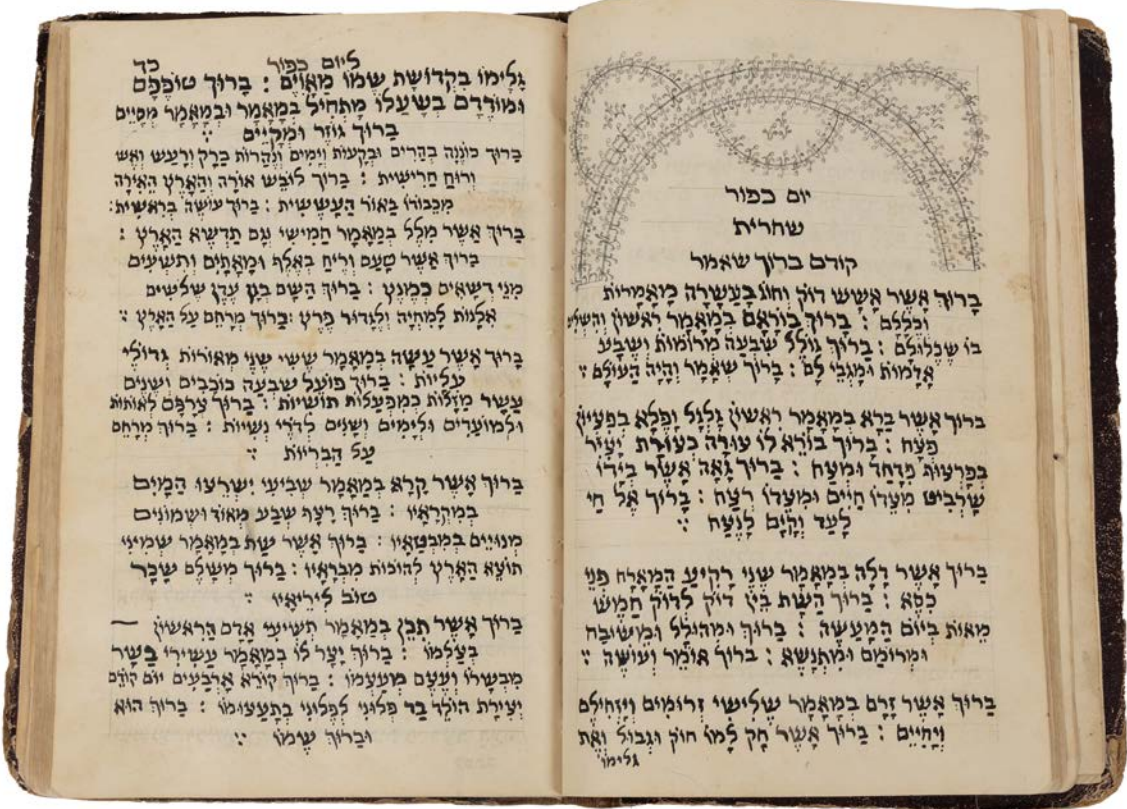 יום כפור
שחרית
קודם ברוך שאמר
בָּרוּךְ אֲשֶׁר אִשֵּׁשׁ דּוֹק וְחוּג בַּעֲשָׂרָה מַאֲמָרוֹת
וּכְלָלָם : בָּרוּךְ בּוֹרְאָם בְּמַאֲמָר רִאשׁוֹן וְהִשְׁלִים
בּוֹ שִׁכְלוּלָם : בָּרוּךְ גּוֹלֵל שִׁבְעָה מְרוֹמוֹת וְשֶׁבַע
אֲדָמוֹת וּמַגְבִּי לָם : בָּרוּךְ שֶׁאָמַר וְהָיָה הָעוֹלָם :
בָּרוּךְ אֲשֶׁר בָּרָא בְּמַאֲמָר רִאשׁוֹן גַּלְגַּל וָפֶלֶא בִּפְעָיוֹן
פֶּצַח : בָּרוּךְ בּוֹרֵא לוֹ עוֹרָה כְּעוֹרַת יָצִיר
בְּפַרְצוּת פַּדַּחַת וּמֵצַח : בָּרוּךְ גָּאָה אֲשֶׁר בְּיָדוֹ
שַׁרְבִיט מִצִּדּוֹ חַיִּים וּמִצִּדּוֹ רֶצַח : בָּרוּךְ אֵל חַי
לָעַד וְקַיָּם לָנֶצַח :
בָּרוּךְ אֲשֶׁר דָּלָה בְּמַאֲמָר שֵׁנִי רָקִיעַ הַמְאָרֵח פְּנֵי
כִסֵּא : בָּרוּךְ הַשָּׁת בֵּין דּוֹק לְדוֹק חֲמֵשׁ
מֵאוֹת בְּיוֹם הַמַּעֲשֶׂה : בָּרוּךְ וּמְהוּלָּל וּמְשׁוּבָּח
וּמְרוֹמָם וּמִתְנַשֵּׂא : בָּרוּךְ אוֹמֵר וְעוֹשֶׂה :
בָּרוּךְ אֲשֶׁר זָרַם בְּמַאֲמָר שְׁלִישִׁי זְרוּמִים וַיַּזְחִילֵם
וְיָחִיִּים : בָּרוּךְ אֲשֶׁר חָק לָמוֹ חוֹק וּגְבוּל וְאֶת
גלימו
ליום כפור כד
גְּלִימוֹ בִּקְדוּשַׁת שְׁמוֹ מְאֻוִּיִּם : בָּרוּךְ טוֹפְפָם
וּמוֹדְדָם בְּשָׁעֳלוֹ מַתְחִיל בְּמַאֲמָר וּבְמַאֲמָר מְסַיֵּים
בָּרוּךְ גּוֹזֵר וּמְקַיֵּים :
בָּרוּךְ כּוֹנְנָהּ בְּהָרִים וּבְקָעוֹת וְיַמִּים וּנְהָרוֹת בָּרָק וָרַעַשׁ וְאֵשׁ
וְרוּחַ חֲרִישִׁית : בָּרוּךְ לוֹבֵשׁ אוֹרָה וְהָאָרֶץ הֵאִירָה
מִכְּבוֹדוֹ בְּאוֹר הָעֲשָׁשִׁית : בָּרוּךְ עוֹשֶׂה בְרֵאשִׁית :
בָּרוּךְ אֲשֶׁר מִלֵּל בְּמַאֲמָר חֲמִישִׁי נָם תַּדְשֵׁא הָאָרֶץ :
בָּרוּךְ אֲשֶׁר טַעַם וְרֵיחַ בְּאֶלֶף וּמָאתַיִם וְתִשְׁעִים
מִנֵּי דְשָׁאִים כְּמֵנֵץ : בָּרוּךְ הַשָּׂם בְּגַן עֵדֶן שְׁלֹשִׁים
אִלָּנוֹת לְמִחְיָה וְלִגְדּוֹר פֶּרֶץ : בָּרוּךְ מְרַחֵם עַל הָאָרֶץ :
בָּרוּךְ אֲשֶׁר עָשָׂה בְּמַאֲמָר שִׁשִּׁי שְׁנֵי מְאוֹרוֹת גְּדוֹלֵי
עֲלִיּוֹת : בָּרוּךְ פּוֹעֵל שִׁבְעָה כּוֹכָבִים וּשְׁנֵים
עָשָׂר מַזָּלוֹת כְּמִפְעָלוֹת תּוּשִׁיּוֹת : בָּרוּךְ צֵרְפָם לְאוֹתוֹת
וּלְמוֹעֲדִים וּלְיָמִים וְשָׁנִים לְדָרֵי נְשִׁיּוֹת : בָּרוּךְ מְרַחֵם
עַל הַבְּרִיּוֹת :
בָּרוּךְ אֲשֶׁר קָרָא בְּמַאֲמָר שְׁבִיעִי יִשְׁרְצוּ הַמַּיִם
בְּמִקְרָאָיו : בָּרוּךְ רָצַף שְׁבַע מֵאוֹת וּשְׁמוֹנִים
מְנוּיִים בְּמִבְטָאָיו : בָּרוּךְ אֲשֶׁר שָׁת בְּמַאֲמָר שְׁמִינִי
תּוֹצֵא הָאָרֶץ לְהוֹכוֹת מִבְּרָאָיו : בָּרוּךְ מְשַׁלֵּם שָׂכָר
טוֹב לִירֵאָיו :
בָּרוּךְ אֲשֶׁר תִּכֵּן בְּמַאֲמָר תְּשִׁיעִי אָדָם הָרִאשׁוֹן
בְּצַלְמוֹ : בָּרוּךְ יָצַר לוֹ בְּמַאֲמָר עֲשִׂירִי בָּשָׂר
מִבְּשָׂרוֹ וְעֶצֶם מֵעַצְמוֹ : בָּרוּךְ קוֹרֵא אַרְבָּעִים יוֹם קוֹדֶם
יְצִירַת הַוָּלָד בַּד פְּלוֹנִי לִפְלוֹנִי בְּתַעֲצוּמוֹ : בָּרוּךְ הוּא
וּבָרוּךְ שְׁמוֹ :